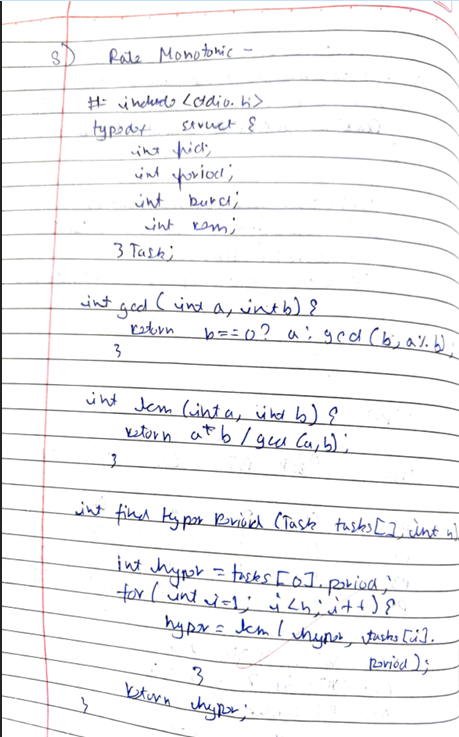 8) Rate Monotonic -
# include <stdio.h>
typedef struct {
int pid;
int period;
int burst;
int rem;
} Task;
int gcd (int a, int b) {
return b==0? a: gcd (b, a%b)
}
int lcm (int a, int b) {
return a*b / gcd (a,b);
}
int find Hyper Period (Task tasks[], int n)
int hyper = tasks[0]. period;
for (int i=1; i<n; i++) {
hyper = lcm ( hyper, tasks[i].
period);
}
return hyper;
}